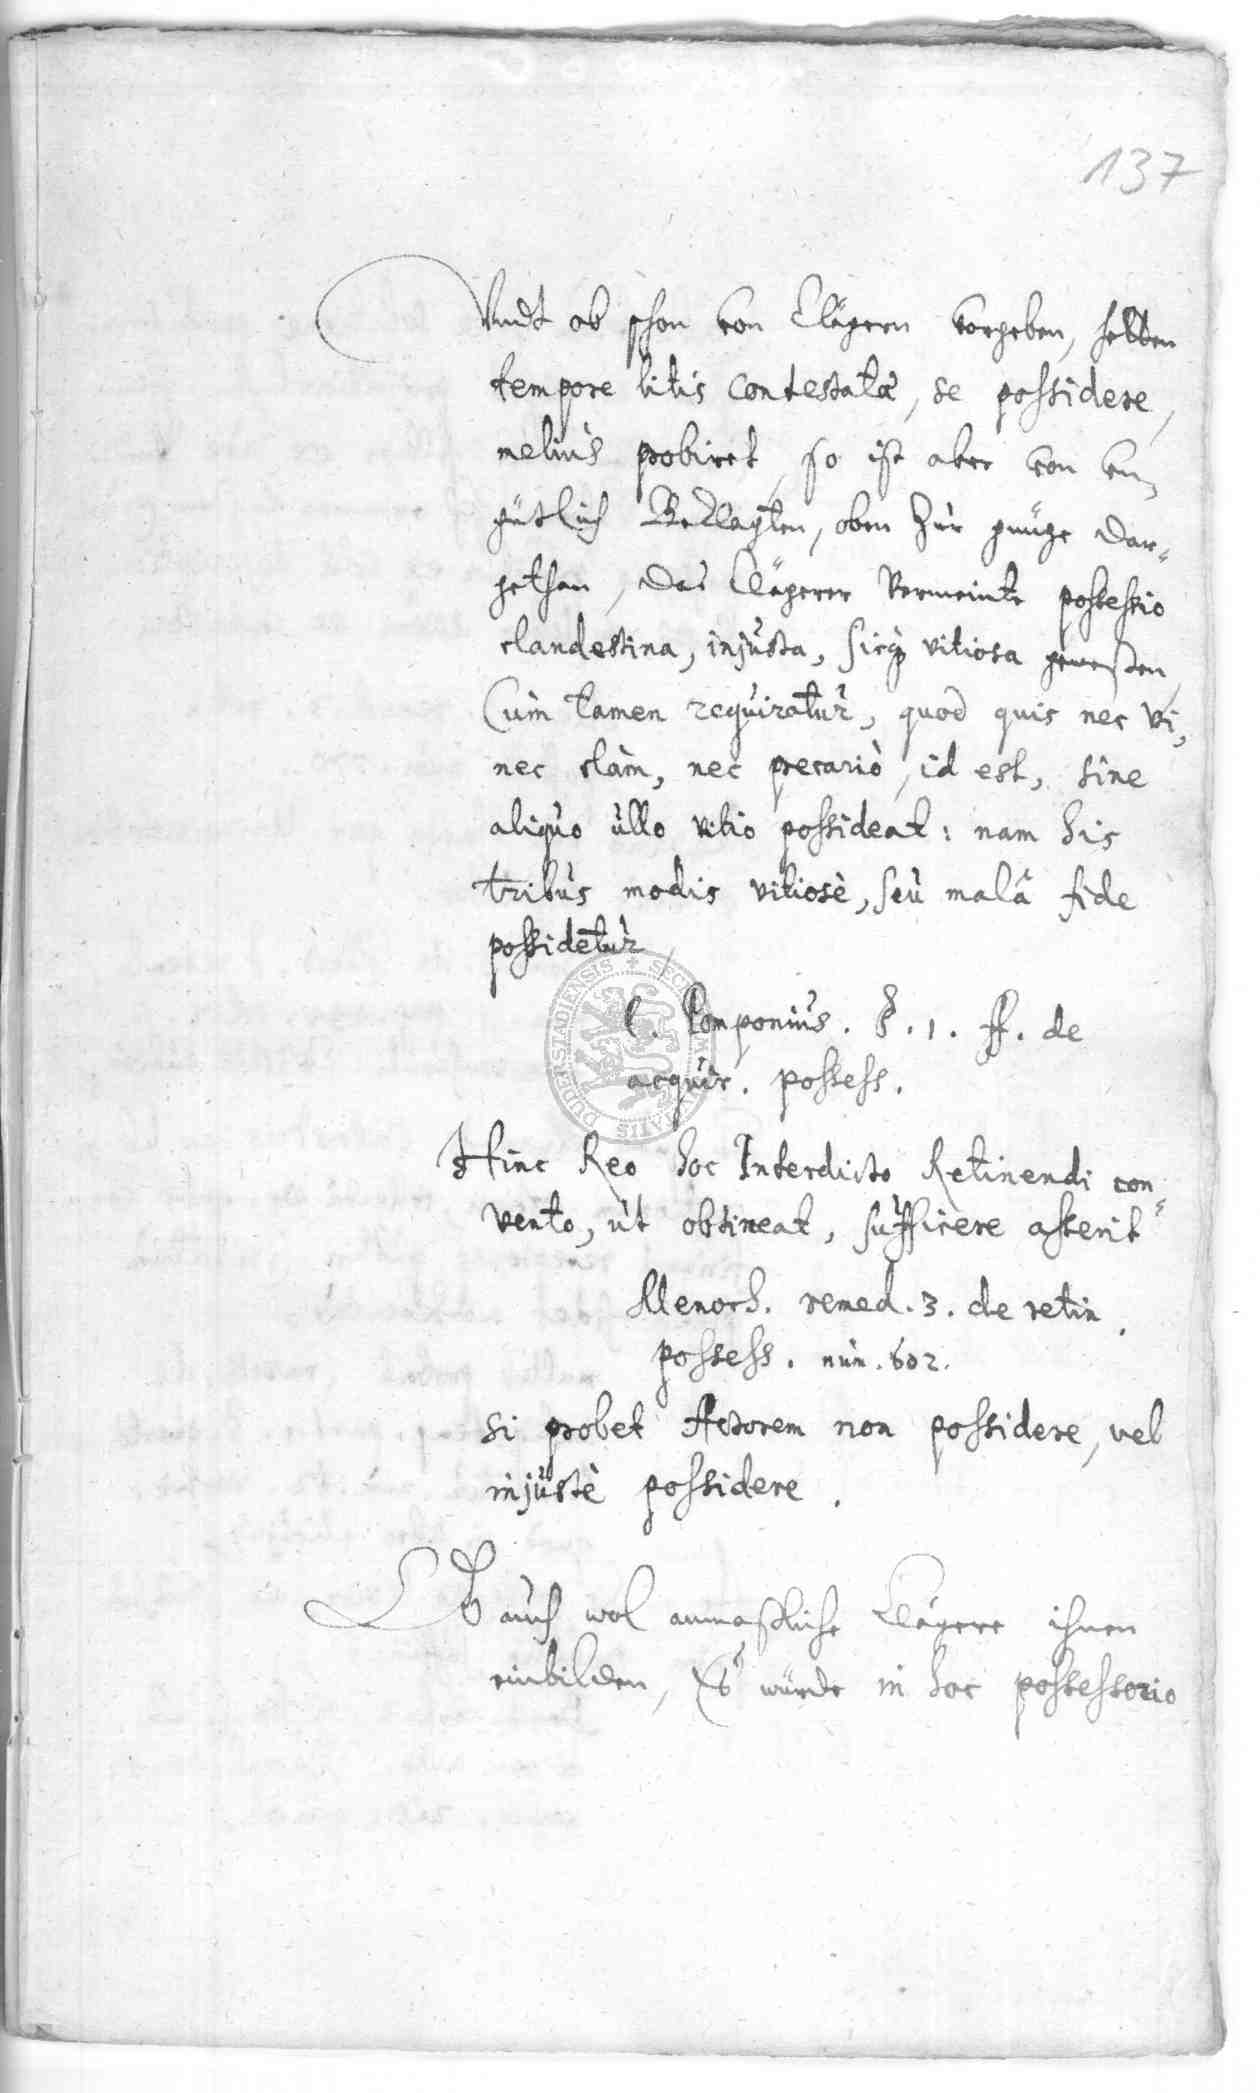 137
Vndt ob schon von Clägern vorgeben, hetten
tempore litis contestatæ, se possidere,
melius probiret, so ist aber von un„
gütlich Beklagten, oben zur gnüge dar„
gethan, das Clägerer vermeinte possessio
clandestina, injusta, sicq; vitiosa gewesten,
Cùm tamen requiratur, quod quis nec vi,
nec clàm, nec precariò, id est, sine
aliquo ullo vitio possideat: nam his
tribus modis vitiosè, seù malâ fide
possidetur,
l. Pomponius. §. 1. ff. de
acquir. possess.
Hinc Reo hoc Interdicto Retinendi con„
vento, ut obtineat, sufficere asserit
Menoch. remed. 3. de retin.
possess. nùm. 602.
si probet Actorem non possidere, vel
injustè possidere.
Ob auch wol anmaßliche Clägere ihnen
einbilden, Es würde in hoc possessorio
DUDERSTADIENSIS